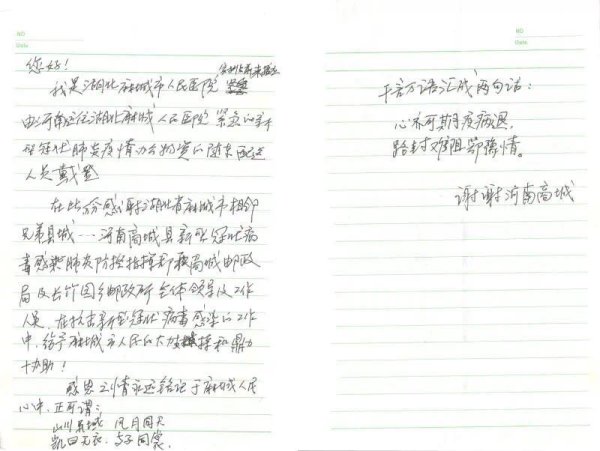 NO
Date
您好!
我是湖北麻城市人民医院
由河南运往湖北麻城人民医院紧急
冠状肺炎疫情办公物资的随车配送
人员戴
在此万分感谢湖北省麻城市相邻
兄弟县城--河南商城县新型冠状病
毒感染肺炎防控指挥部和商城邮政
局及长竹园乡邮政所全体领导及工作
人员,在抗击新型冠状病毒感染的工作
中,给予麻城市人民的大力支持和鼎力
协助!
感恩之情永远铭记于麻城人民
心中,正可谓:
山川异域 风月同天
岂曰无衣,与子同裳.
NO
Date
千言万语汇成两句话:
心齐可期疫病退,
路封难阻邻情.
谢谢河南商城